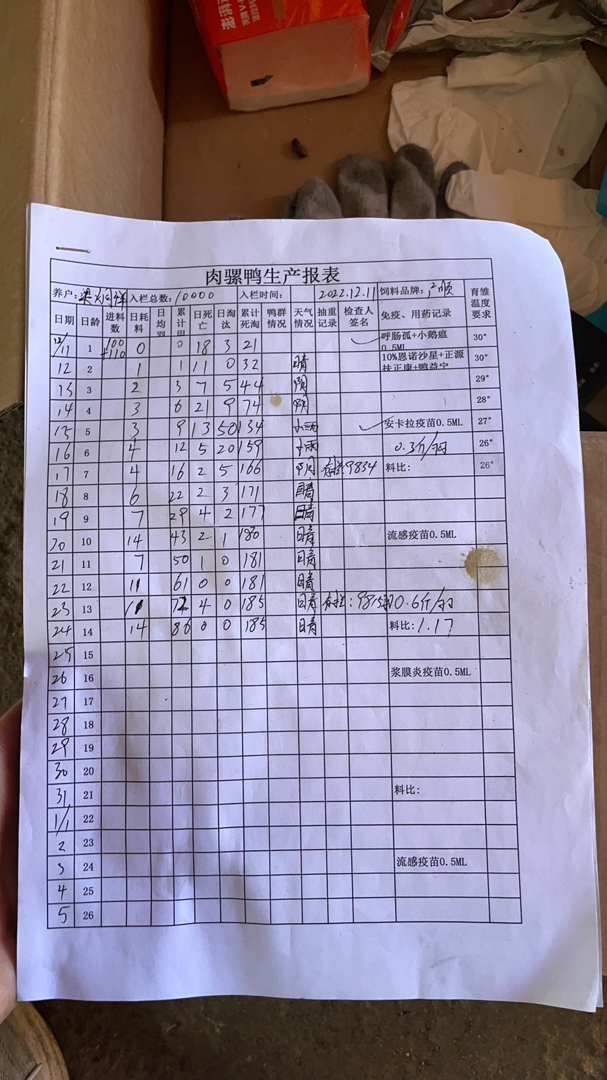 肉骡鸭生产报表
养户: 入栏总数: 10000 入栏时间: 2022.12.11 饲料品牌: 广顺 育雏温度要求
日期 日龄 进料数 日耗料 日均 累计用 日死亡 日淘汰 累计死淘 鸭群情况 天气情况 抽重记录 检查人签名 免疫、用药记录
12/11 1 100+110 0 0 18 3 21 呼肠孤+小鹅瘟0.5ML 30°
12 2 1 1 11 0 32 晴 10%恩诺沙星+正源扶正康+鸭益宁 30°
13 3 2 3 7 5 44 阴 29°
14 4 3 6 21 9 74 阴 28°
15 5 3 9 13 50 134 小雨 安卡拉疫苗0.5ML 27°
16 6 4 12 5 20 159 小雨 0.3斤/羽 26°
17 7 4 16 2 5 166 阴 存栏9834 料比: 26°
18 8 6 22 2 3 171 晴
19 9 7 29 4 2 177 晴
20 10 14 43 2 1 180 晴 流感疫苗0.5ML
21 11 7 50 1 0 181 晴
22 12 11 61 0 0 181 晴
23 13 11 72 4 0 185 晴 存栏: 9815 0.6斤/羽
24 14 14 86 0 0 185 晴 料比: 1.17
25 15
26 16 浆膜炎疫苗0.5ML
27 17
28 18
29 19
30 20
31 21 料比:
1/1 22
2 23
3 24 流感疫苗0.5ML
4 25
5 26